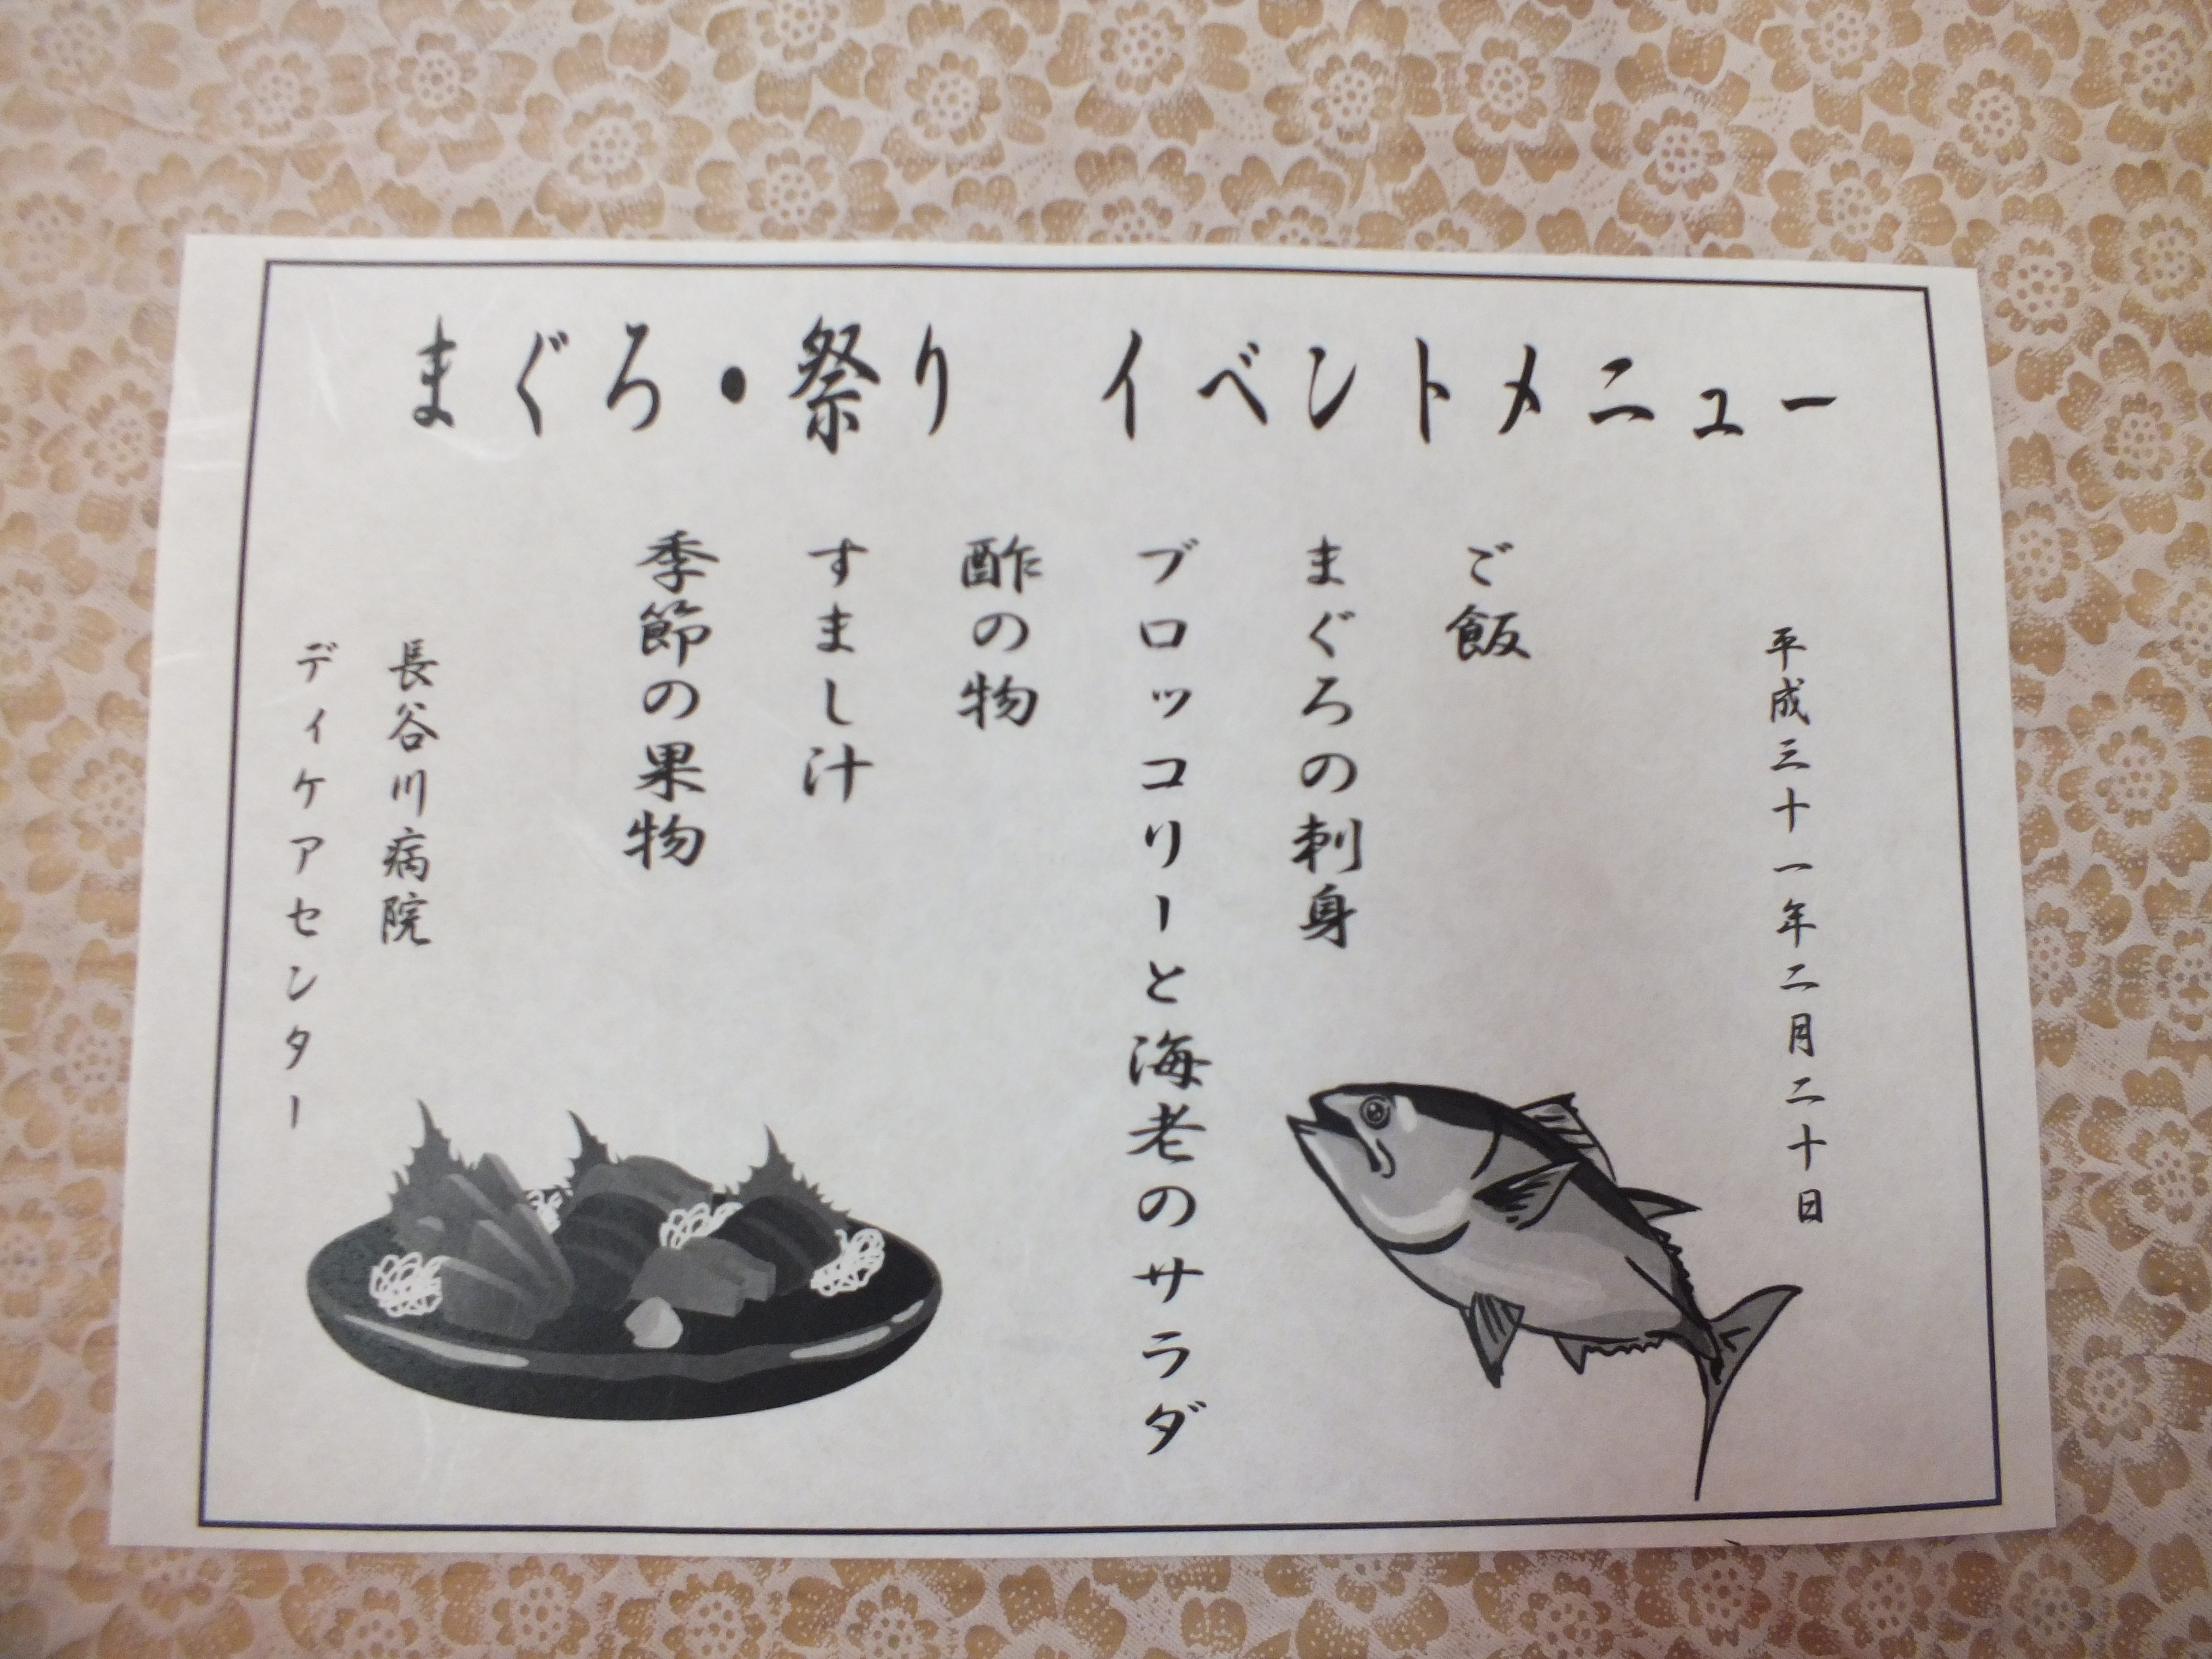 まぐろ・祭り　イベントメニュー
平成三十一年二月二十日
ご飯
まぐろの刺身
ブロッコリーと海老のサラダ
酢の物
すまし汁
季節の果物
長谷川病院
ディケアセンター